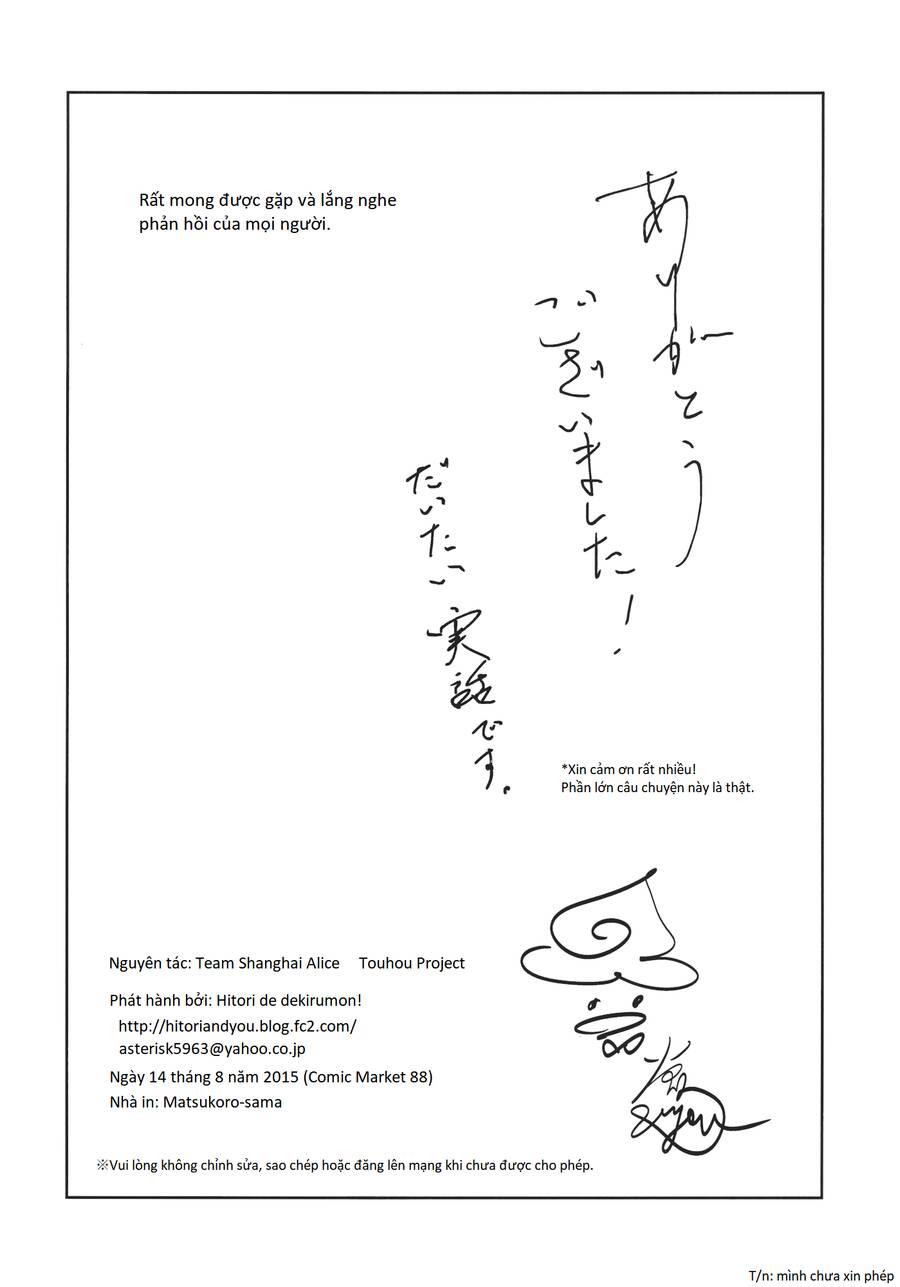 Rất mong được gặp và lắng nghe
phản hồi của mọi người.
ありがとう
ございました!
だいたい実話です。
*Xin cảm ơn rất nhiều!
Phần lớn câu chuyện này là thật.
Nguyên tác: Team Shanghai Alice Touhou Project
Phát hành bởi: Hitori de dekirumon!
http://hitoriandyou.blog.fc2.com/
asterisk5963@yahoo.co.jp
Ngày 14 tháng 8 năm 2015 (Comic Market 88)
Nhà in: Matsukoro-sama
※Vui lòng không chỉnh sửa, sao chép hoặc đăng lên mạng khi chưa được cho phép.
T/n: mình chưa xin phép